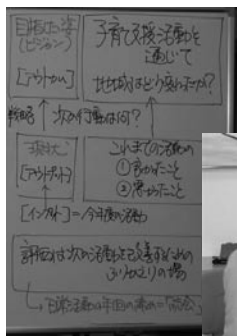 目指す姿
(ビジョン)
[アウトカム]
子育て支援活動を
通じて
地域はどう変わったか?
戦略
次の行動は何?
現状
[アウトプット]
これまでの活動の
①良かったこと
②悪かったこと
[インプット]=今年度の活動
評価は次の活動を改善するための
ふりかえりの場